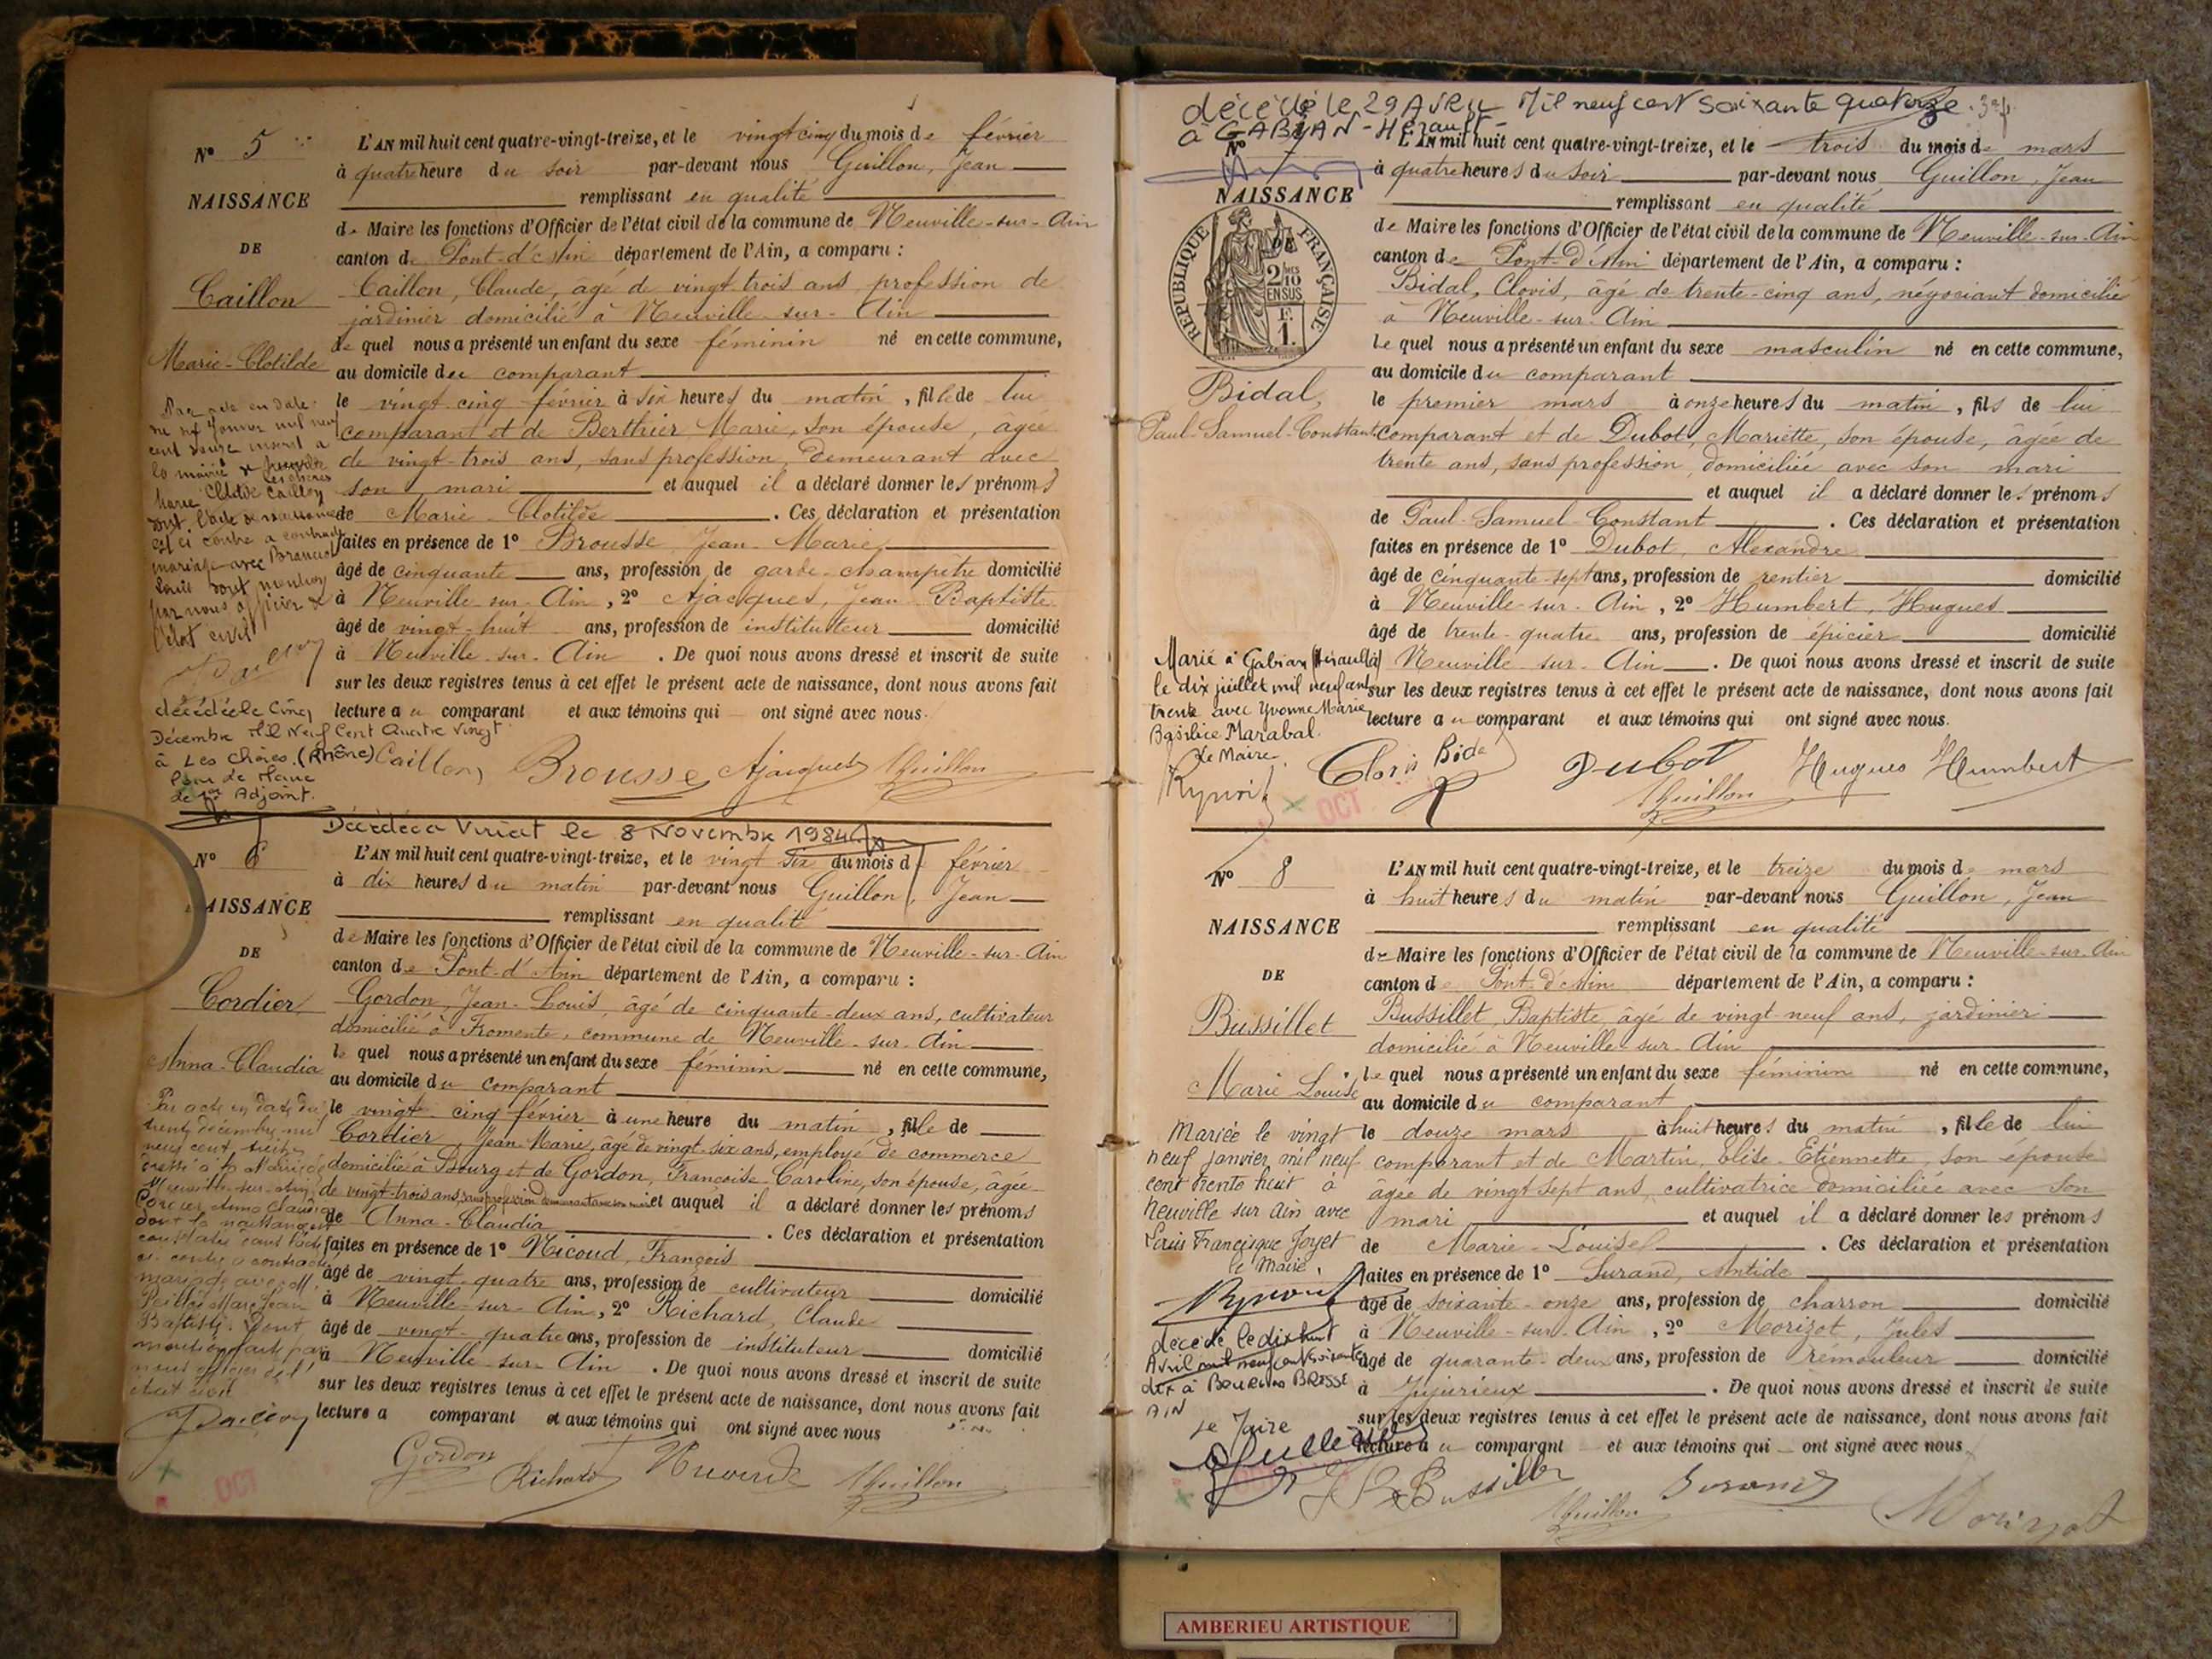 N° 5
NAISSANCE
DE
Caillon
Marie-Clotilde
L'AN mil huit cent quatre-vingt-treize, et le vingt cinq du mois de février
à quatre heure du soir par-devant nous Guillon, Jean
remplissant en qualité
de Maire les fonctions d'Officier de l'état civil de la commune de Neuville-sur-Ain
canton de Pont-d'Ain département de l'Ain, a comparu :
Caillon, Claude, âgé de vingt trois ans, profession de
jardinier domicilié à Neuville-sur-Ain
le quel nous a présenté un enfant du sexe féminin né en cette commune,
au domicile du comparant
le vingt cinq février à six heures du matin, fille de lui
comparant et de Berthier Marie, son épouse, âgée
de vingt-trois ans, sans profession, demeurant avec
son mari et auquel il a déclaré donner les prénoms
de Marie-Clotilde. Ces déclaration et présentation
faites en présence de 1° Brousse Jean-Marie,
âgé de cinquante ans, profession de garde-champêtre domicilié
à Neuville-sur-Ain, 2° Ajacques, Jean Baptiste
âgé de vingt-huit ans, profession de instituteur domicilié
à Neuville-sur-Ain. De quoi nous avons dressé et inscrit de suite
sur les deux registres tenus à cet effet le présent acte de naissance, dont nous avons fait
lecture au comparant et aux témoins qui ont signé avec nous.
mariage avec
par nous officier de
l'état civil
décédée le Cinq
Décembre Mil Neuf Cent Quatre Vingt
à Les Chères (Rhône)
Pour le Maire
le 1er Adjoint.
Caillon Brousse Ajacques Guillon
Décédée à Viriat le 8 Novembre 1984
N° 6
NAISSANCE
DE
Cordier
Anna-Claudia
L'AN mil huit cent quatre-vingt-treize, et le vingt six du mois de février
à dix heures du matin par-devant nous Guillon, Jean
remplissant en qualité
de Maire les fonctions d'Officier de l'état civil de la commune de Neuville-sur-Ain
canton de Pont-d'Ain département de l'Ain, a comparu :
Gordon, Jean-Louis, âgé de cinquante-deux ans, cultivateur
domicilié à Fromente, commune de Neuville-sur-Ain
le quel nous a présenté un enfant du sexe féminin né en cette commune,
au domicile du comparant
le vingt cinq février à une heure du matin, fille de
Cordier, Jean Marie, âgé de vingt-six ans, employé de commerce
domicilié à Bourg et de Gordon, Françoise-Caroline, son épouse, âgée
de vingt-trois ans, sans profession demeurant avec son mari et auquel il a déclaré donner les prénoms
de Anna-Claudia. Ces déclaration et présentation
faites en présence de 1° Nicoud, François
âgé de vingt-quatre ans, profession de cultivateur domicilié
à Neuville-sur-Ain, 2° Richard, Claude
âgé de vingt-quatre ans, profession de instituteur domicilié
à Neuville-sur-Ain. De quoi nous avons dressé et inscrit de suite
sur les deux registres tenus à cet effet le présent acte de naissance, dont nous avons fait
lecture a comparant et aux témoins qui ont signé avec nous
Par acte en date du
trente décembre mil
neuf cent treize
dressé à la Mairie de
Neuville-sur-Ain,
Cordier Anna Claudia
dont la naissance est
constatée dans l'acte
ci-contre a contracté
mariage avec M.
Baptiste. Dont
mention faite par
nous officier de l'
état civil
Gordon Richard Nicoud Guillon
OCT
décédé le 29 AVRIL Mil neuf cent soixante quatorze
à GABIAN - Hérault -
N° 7
NAISSANCE
DE
RÉPUBLIQUE FRANÇAISE
2/10
EN SUS
F.
1.
Bidal,
Paul-Samuel-Constant
L'AN mil huit cent quatre-vingt-treize, et le trois du mois de mars
à quatre heures du soir par-devant nous Guillon, Jean
remplissant en qualité
de Maire les fonctions d'Officier de l'état civil de la commune de Neuville-sur-Ain
canton de Pont-d'Ain département de l'Ain, a comparu :
Bidal, Clovis, âgé de trente-cinq ans, négociant domicilié
à Neuville-sur-Ain
le quel nous a présenté un enfant du sexe masculin né en cette commune,
au domicile du comparant
le premier mars à onze heures du matin, fils de lui
comparant et de Dubot, Mariette, son épouse, âgée de
trente ans, sans profession, domiciliée avec son mari
et auquel il a déclaré donner les prénoms
de Paul-Samuel-Constant. Ces déclaration et présentation
faites en présence de 1° Dubot, Alexandre
âgé de cinquante-sept ans, profession de rentier domicilié
à Neuville-sur-Ain, 2° Humbert, Hugues
âgé de trente-quatre ans, profession de épicier domicilié
à Neuville-sur-Ain. De quoi nous avons dressé et inscrit de suite
sur les deux registres tenus à cet effet le présent acte de naissance, dont nous avons fait
lecture au comparant et aux témoins qui ont signé avec nous.
Marié à Gabian (Hérault)
le dix juillet mil neuf cent
trente avec Yvonne Marie
Basilice Marabal.
Le Maire,
Clovis Bidal Dubot Hugues Humbert
Guillon
OCT
N° 8
NAISSANCE
DE
Bussillet
Marie Louise
L'AN mil huit cent quatre-vingt-treize, et le treize du mois de mars
à huit heures du matin par-devant nous Guillon, Jean
remplissant en qualité
de Maire les fonctions d'Officier de l'état civil de la commune de Neuville-sur-Ain
canton de Pont d'Ain département de l'Ain, a comparu :
Bussillet, Baptiste âgé de vingt-neuf ans, jardinier
domicilié à Neuville-sur-Ain
le quel nous a présenté un enfant du sexe féminin né en cette commune,
au domicile du comparant
le douze mars à huit heures du matin, fille de lui
comparant et de Martin, Elise-Etiennette, son épouse
âgée de vingt sept ans, cultivatrice domiciliée avec son
mari et auquel il a déclaré donner les prénoms
de Marie-Louise. Ces déclaration et présentation
faites en présence de 1° Surand, Antide
âgé de soixante-onze ans, profession de charron domicilié
à Neuville-sur-Ain, 2° Morizot, Jules
âgé de quarante-deux ans, profession de rémouleur domicilié
à Jujurieux. De quoi nous avons dressé et inscrit de suite
sur les deux registres tenus à cet effet le présent acte de naissance, dont nous avons fait
lecture au comparant et aux témoins qui ont signé avec nous.
Mariée le vingt
neuf janvier mil neuf
cent trente huit à
Neuville sur Ain avec
Louis Francisque Joyet
le Maire,
décédé le dix huit
Avril mil neuf cent soixante
dix à BOURG EN BRESSE
AIN
Le Maire
Bussillet Guillon Surand Morizot
AMBERIEU ARTISTIQUE